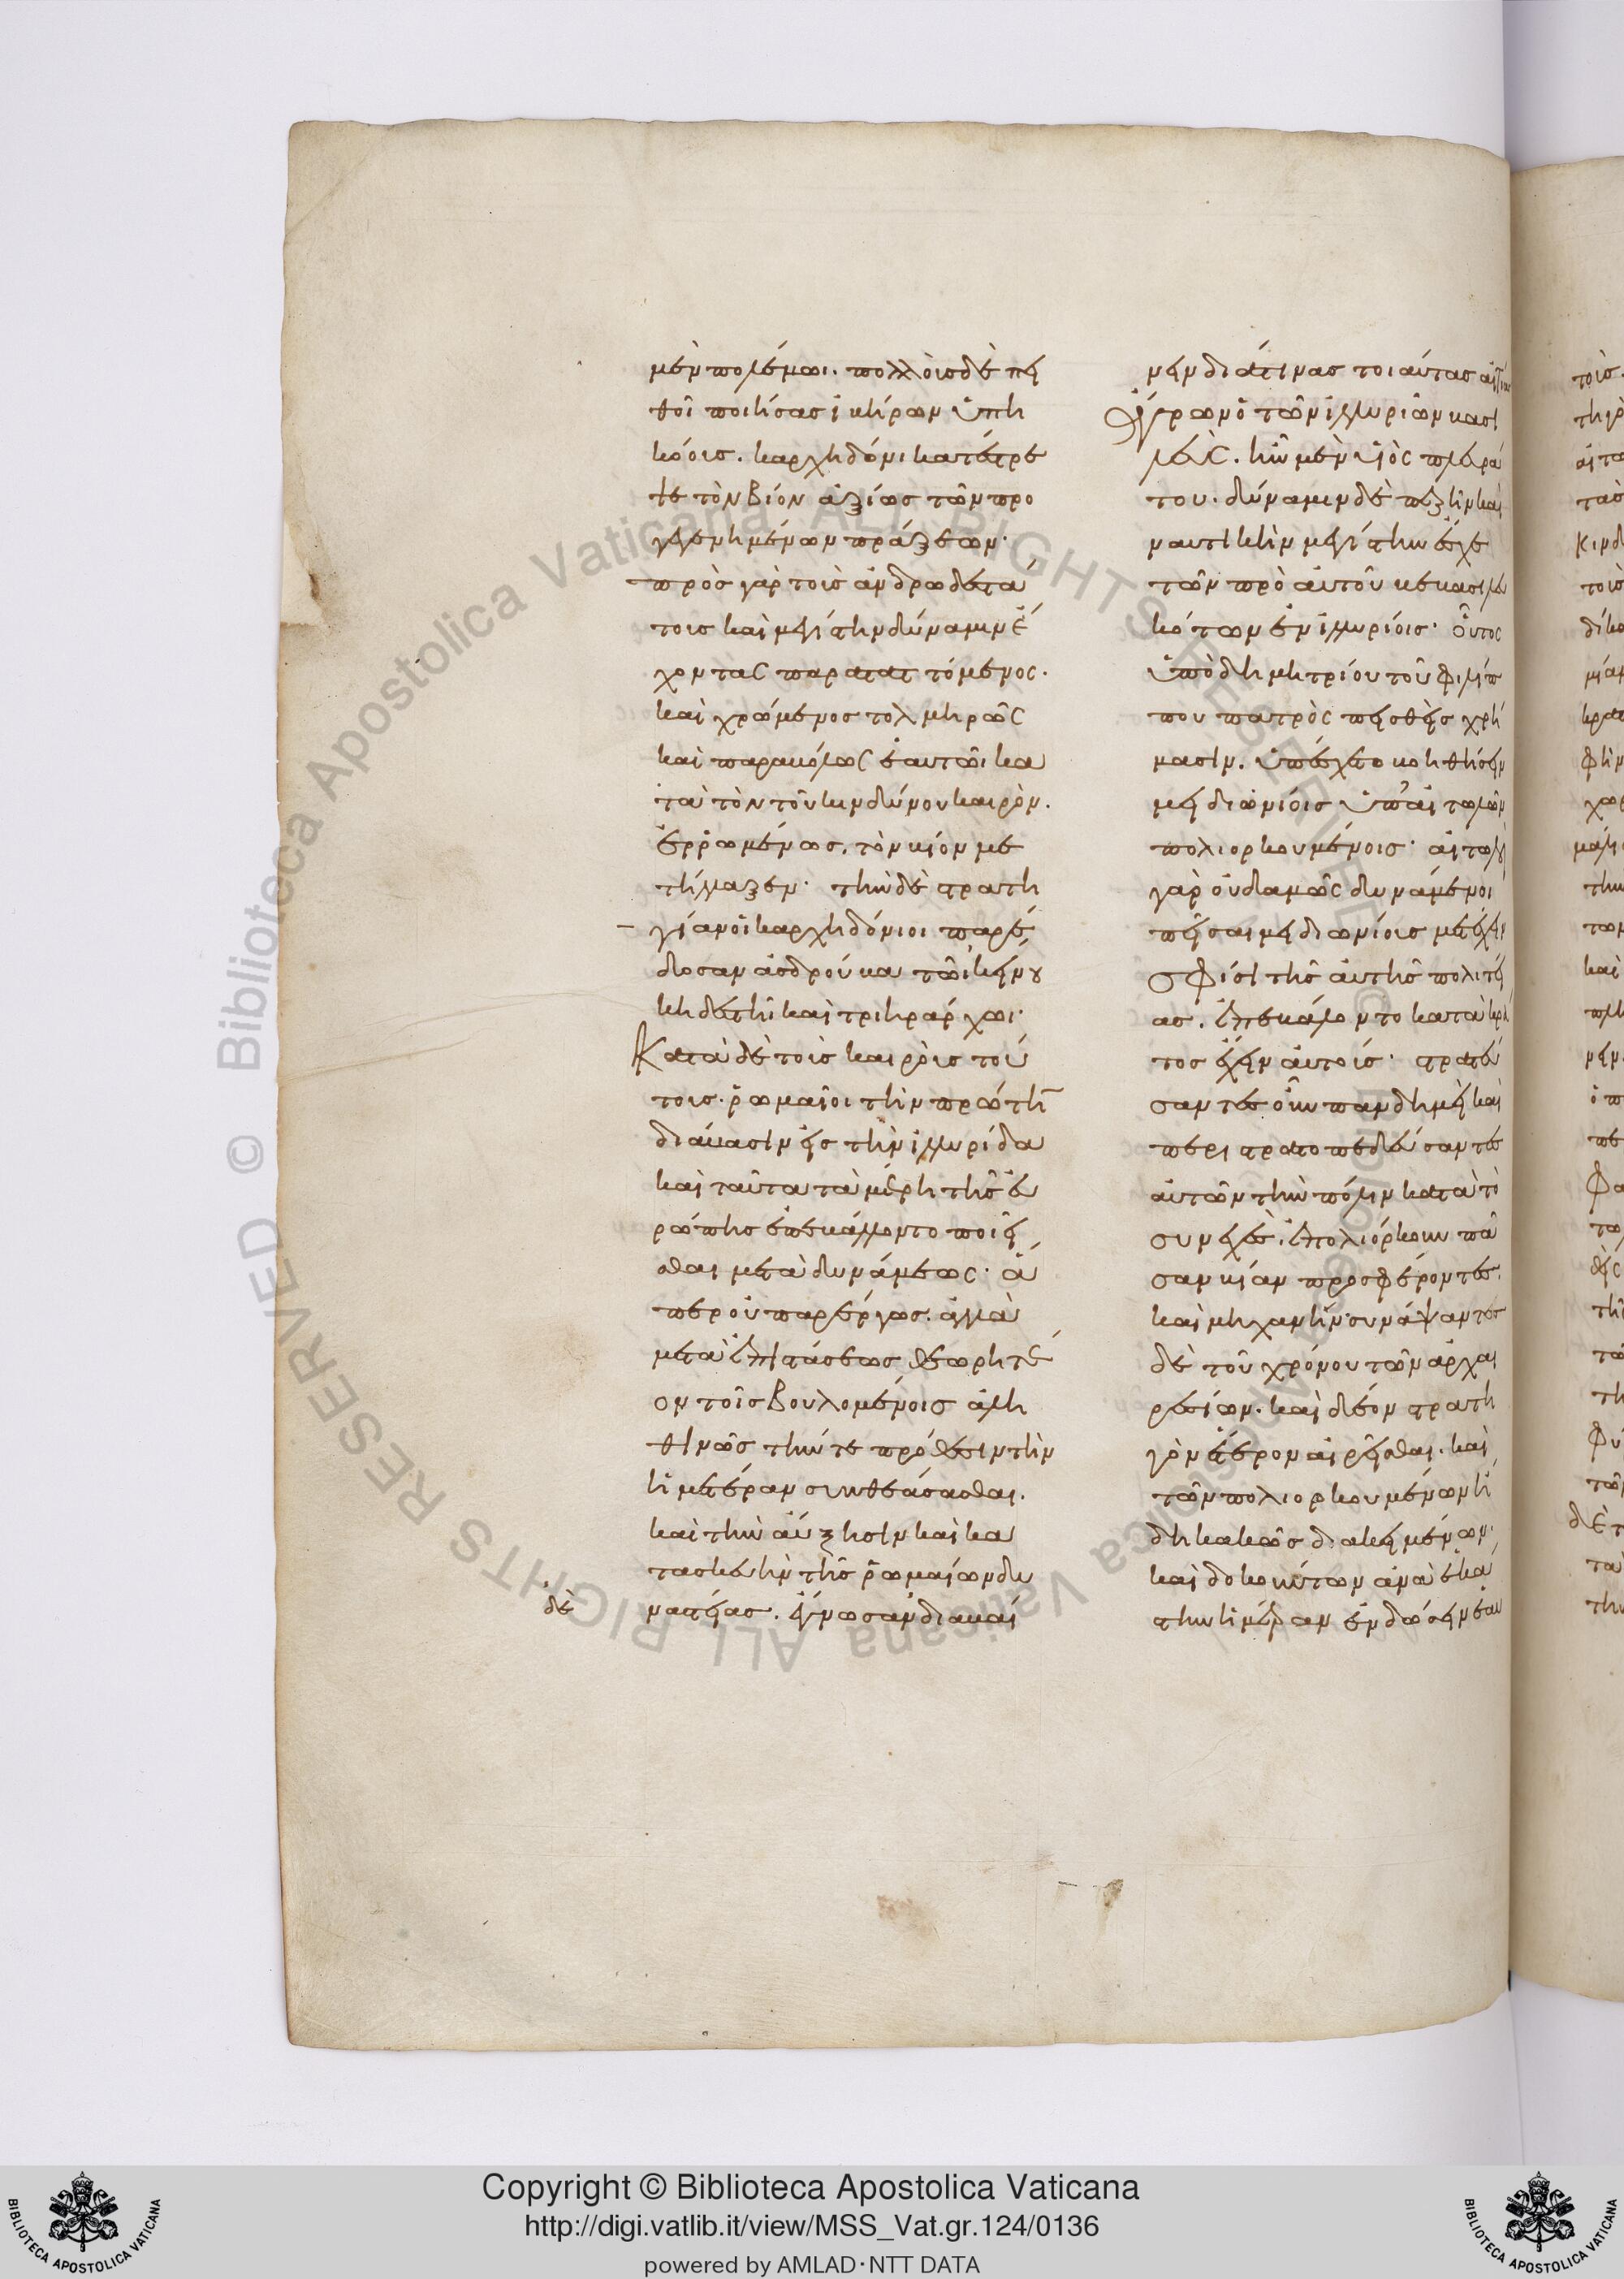 μὲν πολέμωι. πολλοὺς δὲ πει
θοῖ ποιήσας ἰβήρων ὑπη
κόους. καρχηδόνι κατέστρε
ψε τὸν βίον ἀξίως τῶν προ
γεγενημένων πράξεων·
πρὸς γὰρ τοὺς ἀνδρωδεστά
τους καὶ μεγίστην δύναμιν ἔ
χοντας παρατατ τόμενος.
καὶ χρώμενος τολμηρῶς
καὶ παραβόλως ἑαυτῶι κα
τὰ τὸν τοῦ κινδύνου καιρὸν.
ἐρρωμένως. τὸν βίον με
τήλλαξεν· τὴν δὲ στρατη
γίαν οἱ καρχηδόνιοι παρέ
δοσαν ἀσδρούβα τῶι κείνου
κηδεστῆι καὶ τριηράρχωι·
Κατὰ δὲ τοὺς καιροὺς τού
τους. ῥωμαῖοι τὴν πρώτην
διάβασιν εἰς τὴν ἰλλυρίδα
καὶ ταῦτα τὰ μέρη τῆς εὐ
ρώπης ἐπεβάλλοντο ποιεῖ
σθαι μετὰ δυνάμεως· ἅ
περ οὐ παρέργως. ἀλλὰ
μετὰ ἐπιστάσεως θεωρητέ
ον τοῖς βουλομένοις ἀλη
θινῶς τήν τε πρόθεσιν τὴν
ἡμετέραν συνθεάσασθαι.
καὶ τὴν αὔξησιν καὶ κα
τασκευὴν τῆς ῥωμαίων δυ
δὲ ναστείας. ἔγνωσαν διαβαί
νειν διά τινας τοιαύτας αἰτίας
Ἄγρων ὁ τῶν ἰλλυριῶν βασι
λεὺς. ἦν μὲν υἱὸς πλευρά
του. δύναμιν δὲ πεζὴν καὶ
ναυτικὴν μεγίστην ἔσχε
τῶν πρὸ αὐτοῦ βεβασιλευ
κότων ἐν ἰλλυριοῖς· οὗτος
ὑπὸ δημητρίου τοῦ φιλίπ
που πατρὸς πεισθεὶς χρή
μασιν. ὑπέσχετο βοηθήσειν
μειδιωνίοις ὑπ' αἰτωλῶν
πολιορκουμένοις· αἰτωλοὶ
γὰρ οὐδαμῶς δυνάμενοι
πεῖσαι μειδιωνίους μετέχειν
σφίσι τῆς αὐτῆς πολιτεί
ας. ἐπεβάλοντο κατὰ κρά
τος ἑλεῖν αὐτούς· στρατεύ
σαντες οὖν πανδημεὶ καὶ
περιστρατοπεδεύσαντες
αὐτῶν τὴν πόλιν κατὰ τὸ
συνεχὲς. ἐπολιόρκουν πᾶ
σαν βίαν προσφέροντες.
καὶ μηχανήν· συνάψαντος
δὲ τοῦ χρόνου τῶν ἀρχαι
ρεσίων. καὶ δέον στρατη
γὸν ἕτερον αἱρεῖσθαι. καὶ
τῶν πολιορκουμένων ἤ
δη κακῶς διακειμένων·
καὶ δοκούντων ἀνὰ ἑκά
στην ἡμέραν ἐνδώσειν ἑαυ